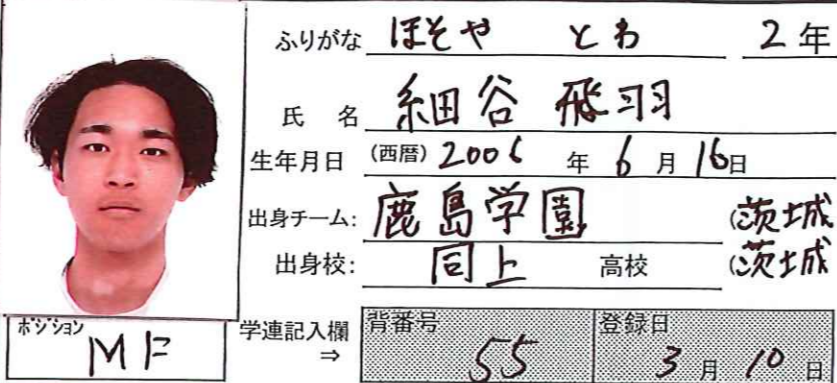 ふりがな ほそや とわ 2年
氏 名 細谷 飛羽
生年月日 (西暦) 2006 年 6 月 16日
出身チーム: 鹿島学園 (茨城
出身校: 同上 高校 (茨城
ポジション MF
学連記入欄 ⇒ 背番号 55 登録日 3 月 10 日